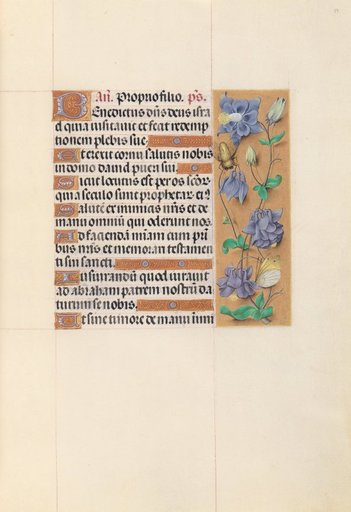 An̄. Proprio filio. ps.
Benedictus dn̄s deus isra
el quia visitauit et fecit redemp
tionem plebis sue
Et erexit cornu salutis nobis
in domo dauid pueri sui.
Sicut locutus est per os scōr
qui a seculo sunt prophetar. ei9
Salutē ex inimicis nr̄is et de
manu omniū qui oderunt nos.
Ad faciendā mīam cum pri
bus nr̄is et memorari testamen
ti sui sancti.
Iusiurandū quod iurauit
ad abraham patrem nostrū da
turum se nobis.
Ut sine timore de manu inimi